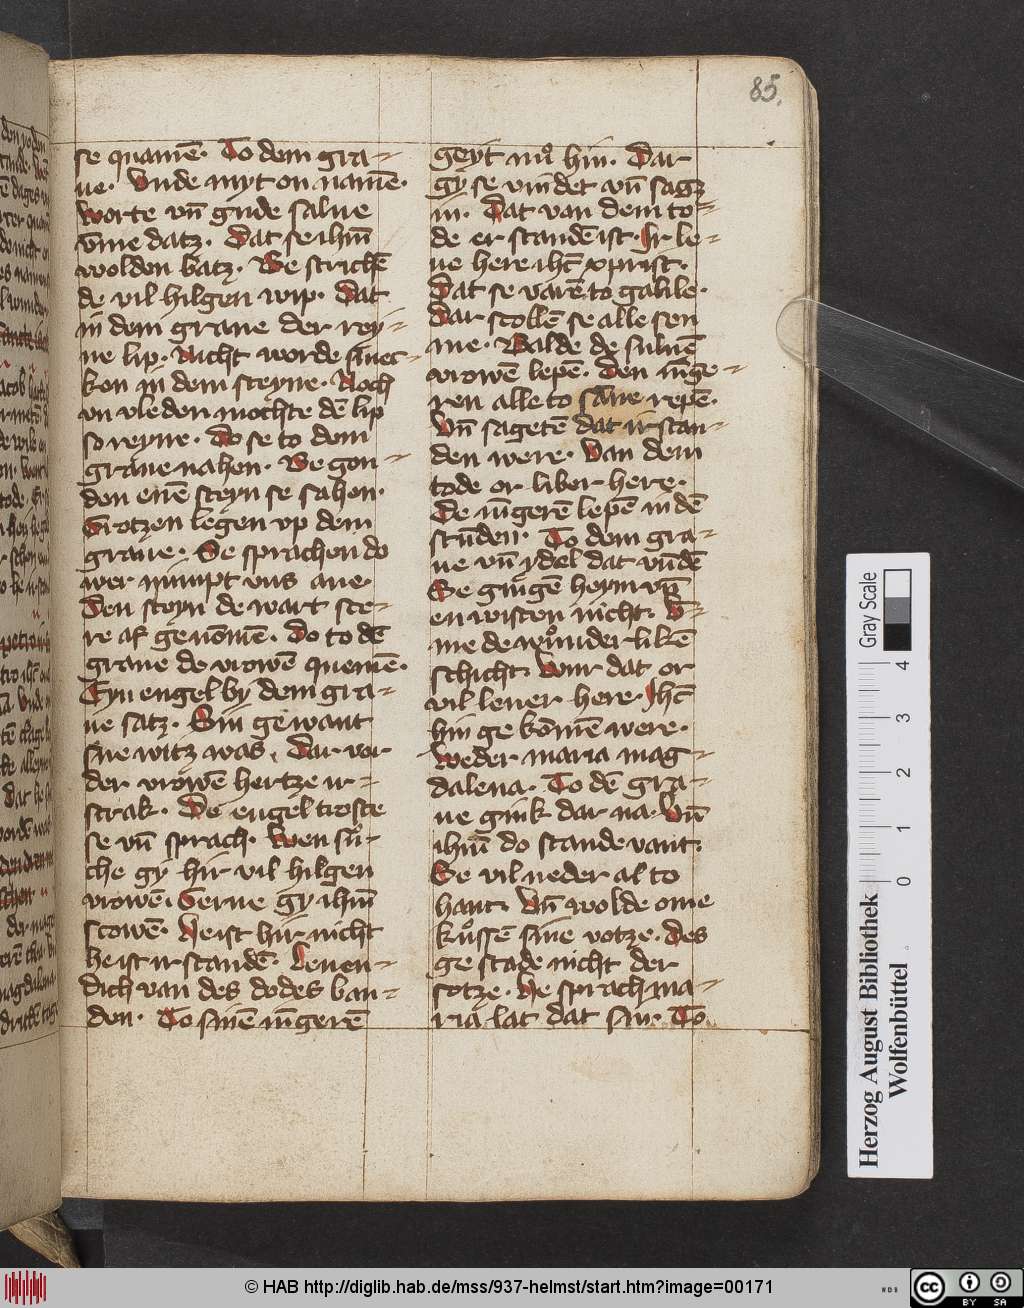 85.
se quamē. To dem gra-
ue. Vnde myt on namē.
worte vn̄ gude salue
v̄me datz. Dat se ihm̄
wolden batz. De strickē
de vil hilgen wip. Dat
in dem graue der rey-
ne lip. Nicht worde sines-
kon in dem steyne. Noch
vn vleden mochte dē lip
so reyne. Do se to dem
graue nahen. Be gon-
den enē steyn se sahen.
Grotzen legen vp dem
graue. De sprachen do
wer nimpt vns aue.
Den steyn de wart ste-
re af genōmen. Do to dē
graue de vrowē quemē.
Eyn engel by dem gra-
ue satz. Sin gewant
sne witz was. Dar vor
der vrowē hertze ir-
strak. De engel troste
se vn̄ sprach. Wen sů-
che gy hir vil hilgen
vrowē. Gerne gy ihm̄
scowē. He ist hir nicht
he ist ir standē. Leuen-
dich van des dodes ban-
den. To sinē iūgerē
geyt nů hin. Dar
gy se vindet vn̄ sagz
in. Dat van dem to-
de er standē ist. Ir le-
ue here ihc̄ xprist.
Dat se varē to galile.
Dar scollē se alle sen
ine. Balde de suluē
vrowē lepē. Den iūge-
ren alle to sāne repē.
Vn̄ sagetē dat ir stan-
den were. Van dem
tode or liber here.
De iūgerē lepē in dē
stūden. To dem gra-
ue vn̄ ydel dat vūdē
Se gingē heym vn̄
en wisten nicht. V̄-
me de wůnderlikē
schicht. Wur dat or
vil leuer here. Ihc̄
hin ge kōmē were.
Weder maria mag-
dalena. To dē gra-
ue gink dar na. Vn̄
ihm̄ do stande vant.
Se vil neder al to
hant. Vn̄ wolde ome
kůssē sine votze. Des
ge stade nicht der
sotze. He sprach ma-
ria lat dat sin. To
Gray Scale
4
3
2
1
0
Herzog August Bibliothek
Wolfenbüttel
© HAB http://diglib.hab.de/mss/937-helmst/start.htm?image=00171
cc
BY SA